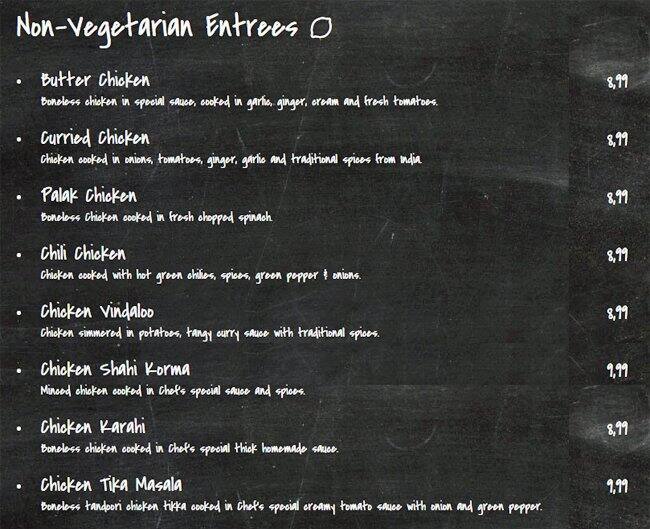 Non-Vegetarian Entrees
Butter Chicken 8,99
Boneless chicken in special sauce, cooked in garlic, ginger, cream and fresh tomatoes.
Curried Chicken 8,99
Chicken cooked in onions, tomatoes, ginger, garlic and traditional spices from India.
Palak Chicken 8,99
Boneless Chicken cooked in fresh chopped spinach.
Chili Chicken 8,99
Chicken cooked with hot green chilies, spices, green pepper & onions.
Chicken Vindaloo 8,99
Chicken simmered in potatoes, tangy curry sauce with traditional spices.
Chicken Shahi Korma 9,99
Minced chicken cooked in Chef's special sauce and spices.
Chicken Karahi 8,99
Boneless chicken cooked in Chef's special thick homemade sauce.
Chicken Tika Masala 9,99
Boneless tandoori chicken tikka cooked in Chef's special creamy tomato sauce with onion and green pepper.